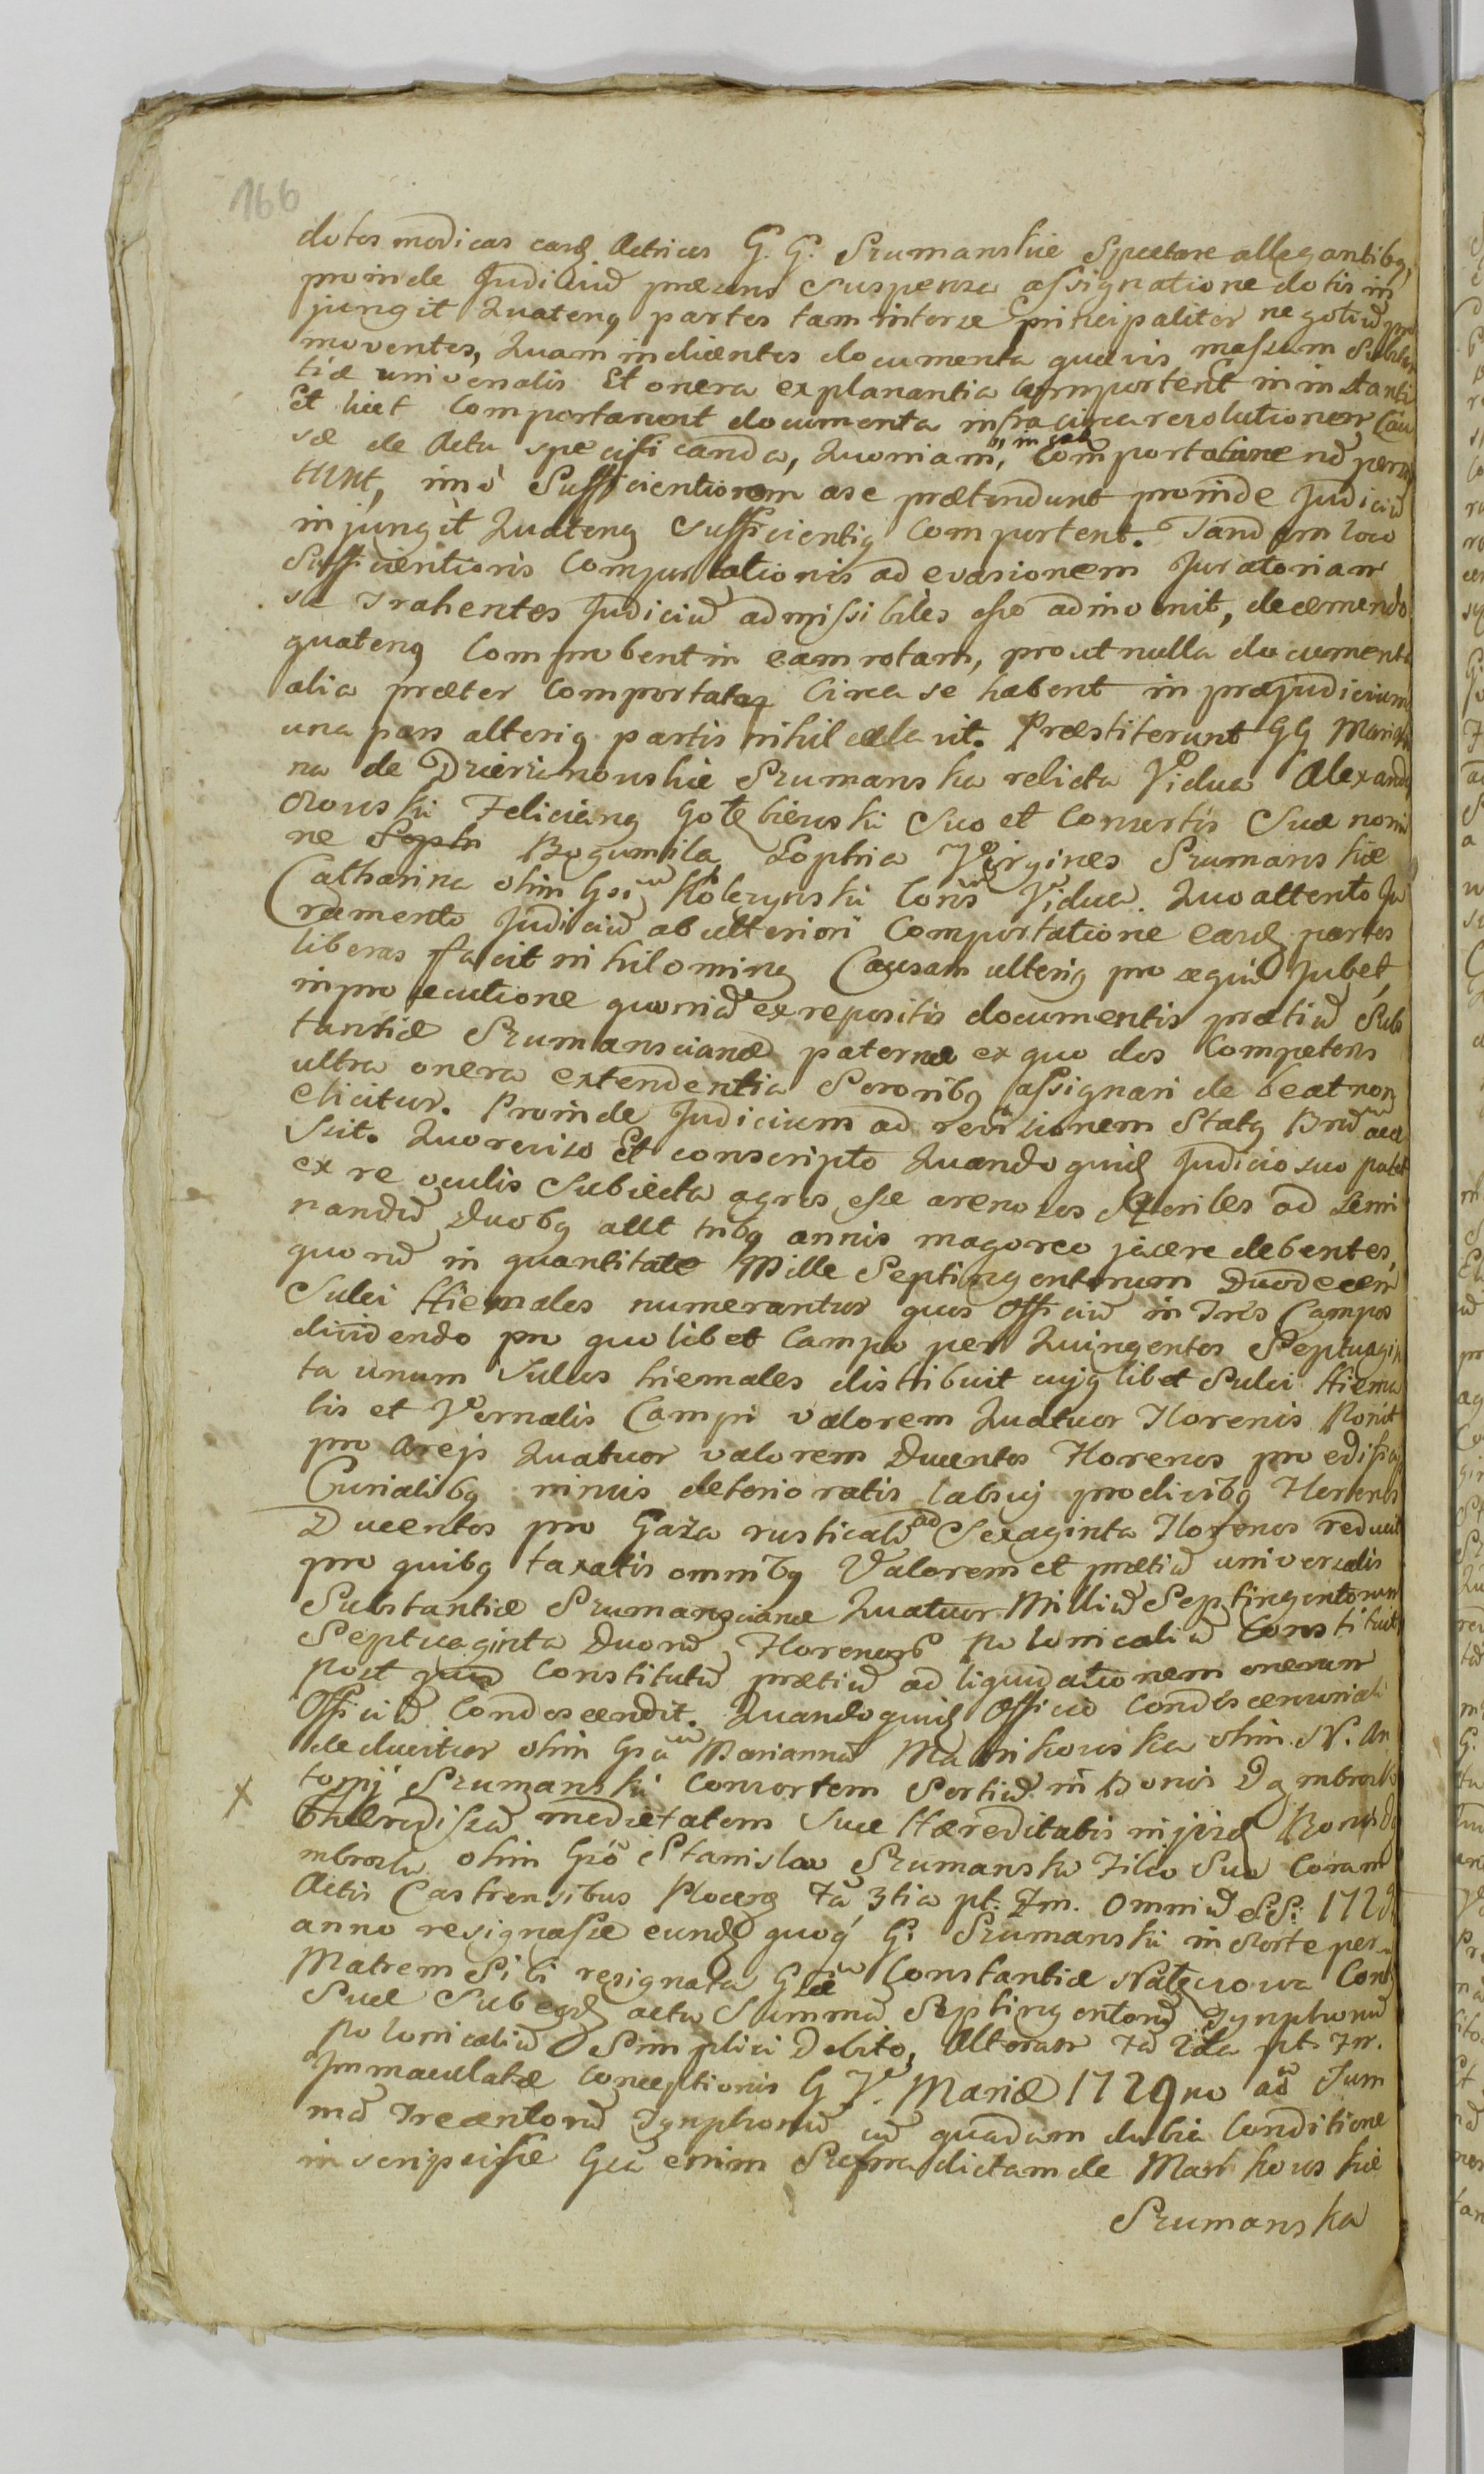 166
dotes modicas eard. Actrices G. G. Szumanskie Spectare allegantibq,
proinde Judiciu praesens suspensa assignatione dotis in
jungit Quatenq partes tam inter se principaliter negotiu pro
moventes, Quam indicentes documenta quaevis massam Substan
tiae universalis Et onera explanantia comportent in instanti
Et licet Comportarent documenta infra circa resolutionem Cau
sae de Actu specificanda, Quoniam, in Comportatione no
tunt, imo Sufficientiorem proinde Judiciu
injungit Quatenq Sufficientiq Comportent. Tandem loco
Sufficientioris Comportationis ad evasionem Juratoriam
se trahentes Judiciu admissibiles esse adinvenit, decernendo
quatenq Comprobent in eam rotam, prout nulla documenta
alia praeter Comportata Circa se habent in praejudicium
una pars alteriq partis nihil celavit. Praestiterunt GG Marian
na de Dzierzanowskie Szumanska relicta Vidua Alexand
rowski Felicianq Gołębiewski Suo et Consortis Suae nomi
ne Bogumila Sophia Virgines Szumanskie
Catharina olim Gsi Kolczynski Cons Vidua. Quo attento Ju
ramento Judiciu ab ulteriori Comportatione easd. partes
liberas facit nihilominq Causam ulteriq prosequi Jubet,
in prosecutione quoniã ex repositis documentis pretiu Subs
tantiae Szumanscianae paternae ex quo dos Competens
ultra onera extendentia Sororibq assignari debeat non
elicitur. Proinde Judicium ad revisionem Statq Bnru
scit. Quo reviso Et conscripto Quandoquid Judicio suo patet
ex re oculis Subiecta agros esse arenosos Steriles ad Semi
nandu Duobq aut tribq annis magorco jacere debentes,
quoru in quantitate Mille Septingentorum Duodecem
Sulci Hiemales numerantur quos Officiu in Tres Campos
dividendo pro quolibet Campo per Quingentos Septuagin
ta unum Sulcos hiemales distribuit cujqlibet Sulci Hiema
lis et Vernalis Campi valorem Quatuor Florenis Ponit
pro Areis Quatuor valorem Ducentos Florenos pro edificijs
Curialibq nimis deterioratis labsuj prodivibq Florenos
Ducentos pro Gaza rusticali ad Sexaginta Florenos reducit
pro quibq taxatis omnibq Valorem et pretiu universalis
Substantiae Szumanscianae Quatuor Milliu Septingentorum
Septuaginta Duoru Florenor Polonicaliu Constituit
post quod Constitutu pretiu ad liquidationem onerum
Officiu Condescendit. Quandoquid Officio Condescensoriali
deducitur olim Gsa Marianna Markowska olim N. An
tonij Szumanski Consortem Sortiu in Bonis Dąmbrosk
X
medietatem Suae Haereditatis in ijsd Bonis Dą
mbrosk olim Gso Stanislao Szumanski Filio Suo Coram
Actis Castrensibus Plocens Fa 3tia pt. Fm. Omniu S.S: 1728
anno resignasse eund quoq G: Szumanski in Sorte per
Matrem Sibi resignata Gsae Constantiae Natęczowa Cons
Suae Sub eod actu Summa Septingentoru Tynphonu
polonicaliu Simplici Debito, Alteram Fa 2da pt. Fm.
Immaculatae Conceptionis G V. Mariae 1729no ad Sum
ma Trecentoru Tynphonu cu quadam dubia Conditione
inscripsisse Gsa enim Supradictam de Markowskie
Szumanska